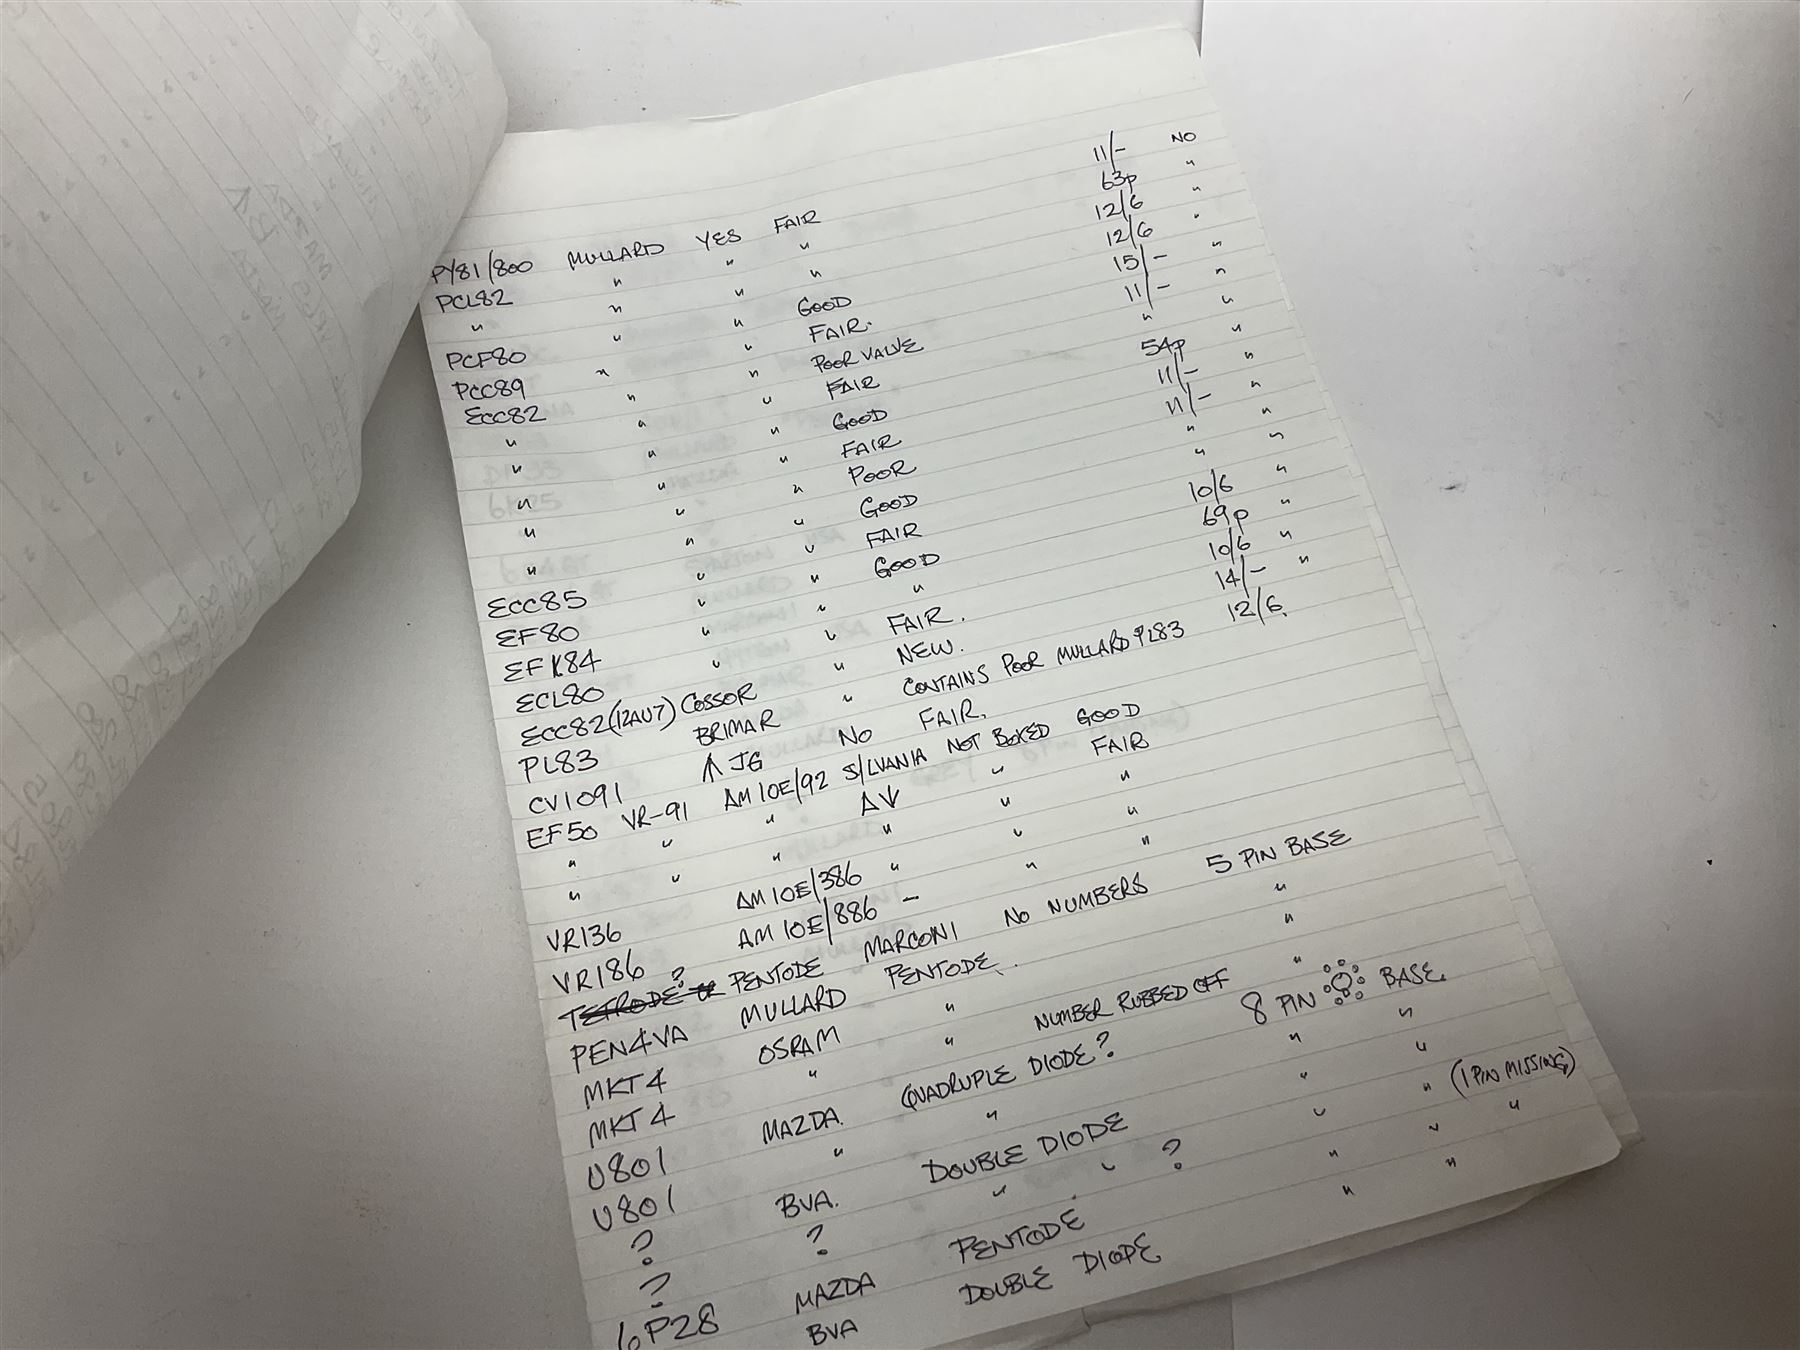 PY81/800 MULLARD YES FAIR 11/- NO
PCL82 " " " 63p "
" " " " 12/6 "
PCF80 " " GOOD 12/6 "
PCC89 " " FAIR. 15/- "
ECC82 " " POOR VALVE 11/- "
" " " FAIR " "
" " " GOOD 54p "
" " " FAIR 11/- "
" " " POOR 11/- "
" " " GOOD " "
ECC85 " " FAIR " "
EF80 " " GOOD 10/6 "
EF184 " " " 69p "
ECL80 " " FAIR. 10/6 "
ECC82(12AU7) COSSOR " NEW. 14/- "
PL83 BRIMAR " CONTAINS POOR MULLARD PL83 12/6.
CV1091 ↑ JG NO FAIR.
EF50 VR-91 AM10E/92 SYLVANIA NOT BOXED GOOD
" " " A↓ " FAIR
" " " " " "
VR136 AM10E/386 " " "
VR186 AM10E/886 - " "
PENTODE MARCONI NO NUMBERS 5 PIN BASE
PEN4VA MULLARD PENTODE. "
MKT4 OSRAM " "
MKT4 " " NUMBER RUBBED OFF "
U801 MAZDA. QUADRUPLE DIODE? 8 PIN BASE
U801 " " " "
? BVA. DOUBLE DIODE " "
? ? " " ? " " (1 PIN MISSING)
6P28 MAZDA PENTODE " " "
BVA DOUBLE DIODE " "